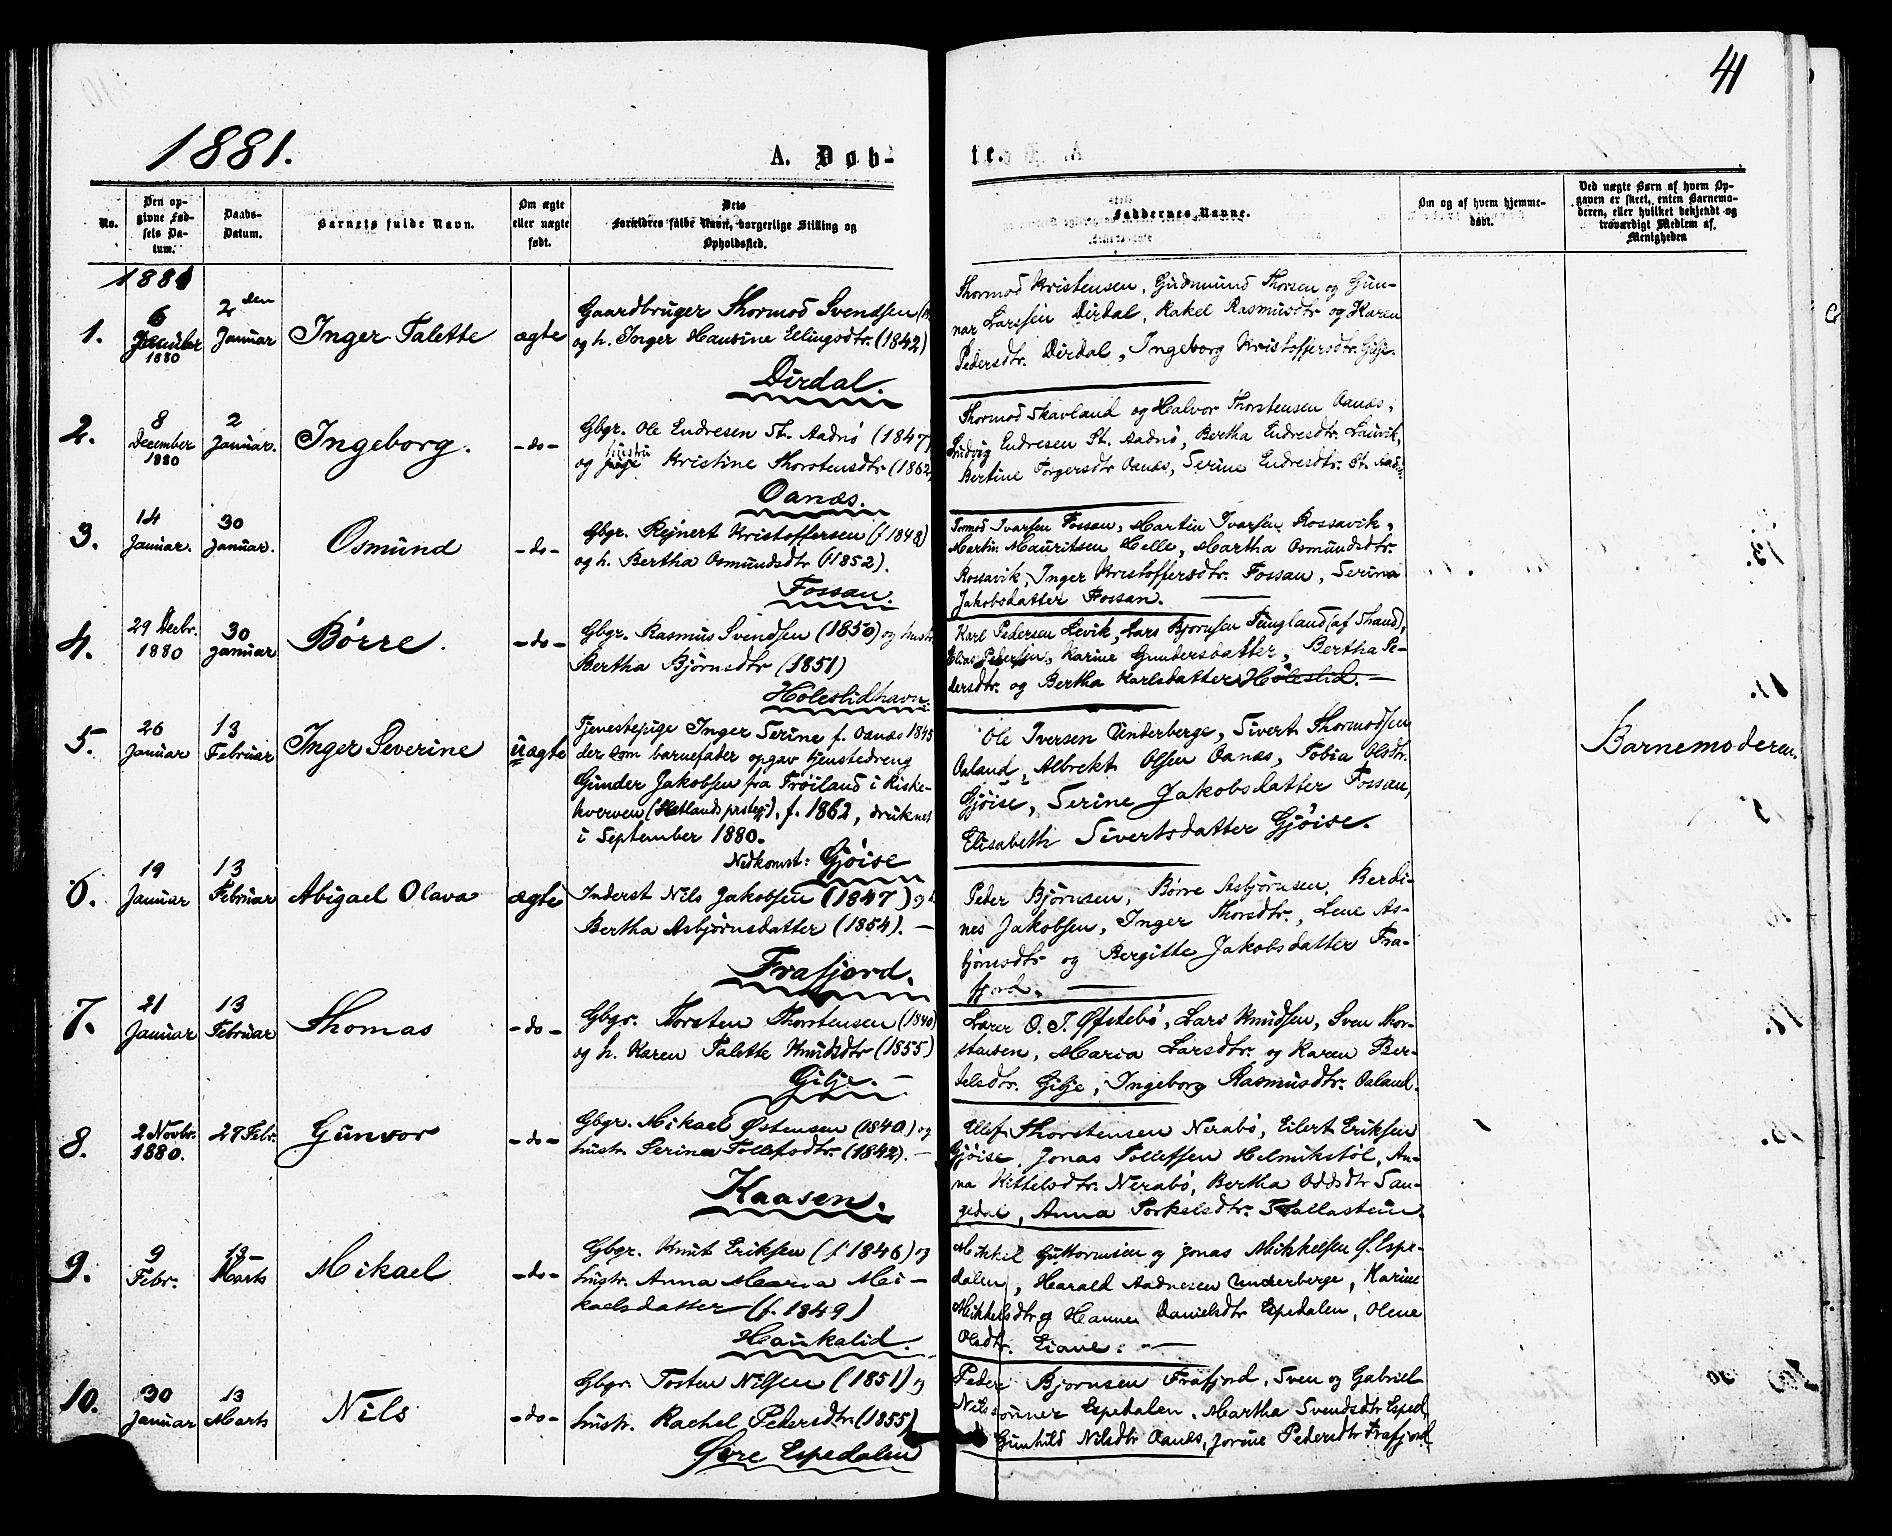 41
1881.
A. Døb-
te.
No.
Den op-
givne Fød-
sels Da-
tum.
Daabs-
Datum.
Barnets fulde Navn.
Om ægte
eller uægte
født.
Dets
Forældres fulde Navn, borgerlige Stilling og
Opholdssted.
Faddernes Navne.
Om og af hvem hjemme-
døbt.
Ved uægte Børn af hvem Op-
gaven er skeet, enten Barnemo-
deren, eller hvilket bekjendt og
troværdigt Medlem af
Menigheden
1881
1.
6
1880
2den
Januar
Inger Talette
ægte
Gaardbruger Thormod Svendsen
og h. Inger Hansine Ellingsdtr. (1842)
Dirdal.
Thormod Kristensen, Gudmund Thorsen og Gun-
nar Larssen Dirdal, Rakel Rasmusdtr og Karen
Pedersdtr. Dirdal, Ingeborg Kristoffersdtr. Gilje.
2.
8
December
1880
2
Januar.
Ingeborg.
-do-
Gbgr. Ole Endresen St. Aadnø (1847)
og hustru Kristine Thorstensdtr (1862
Oanæs.
Thormod Skavland og Halvor Thorstensen Oanæs,
Ludvig Endresen St. Aadnø, Bertha Endresdtr. Lauvik,
Bertine Torgersdtr Oanæs, Serine Endresdtr. St. Aadnø
3.
14
Januar.
30
Januar.
Osmund
-do-
Gbgr. Rejnert Kristoffersen (f 1848)
og h. Bertha Osmundsdtr (1852).
Fossan.
Tormod Ivarsen Fossan, Martin Ivarsen Rossavik,
Martin Mauritsen Helle, Martha Osmundsdtr.
Rossavik, Inger Kristoffersdtr. Fossan, Serina
Jakobsdatter Fossan.
4.
29 Decbr.
1880
30
Januar
Børre.
-do-
Gbgr. Rasmus Svendsen (1850) og hustr
Bertha Bjørnsdtr (1851)
Høleslidhavn.
Karl Pedersen Levik, Lars Bjørnsen Tungland (af Strand),
Elias Pedersen, Karine Gundersdatter, Bertha Pe-
dersdtr. og Bertha Karlsdatter Høleslid.
5.
26
Januar
13
Februar
Inger Severine
uægte
Tjenestepige Inger Serine f. Oanæs 1845
der som barnefader opgav tjenestedreng
Gunder Jakobsen fra Frøiland i Riske-
kverven (Hetlands prsteg.), f. 1862, druknet
i September 1880.
Nedkomst: Gjøise
Ole Iversen Underberge, Sivert Thormodsen
Oaland, Albrekt Olsen Oanæs, Tobia Olsdtr.
Gjøise, Serine Jakobsdatter Fossan,
Elisabeth Sivertsdatter Gjøise.
Barnemoderen.
6.
19
Januar
13
Februar
Abigael Olava
ægte
Inderst Nils Jakobsen (1847) og h.
Bertha Asbjørnsdatter (1854).
Frafjord.
Peder Bjørnsen, Børre Asbjørnsen, Berdi-
nes Jakobsen, Inger Thorsdtr., Lene As-
bjørnsdtr og Bergitte Jakobsdatter Fra-
fjord.
7.
21
Januar
13
Februar
Thomas
-do-
Gbgr. Thorsten Thorstensen (1840)
og h. Karen Talette Knudsdtr (1855)
Gilje.
Lærer O. T. Østebø, Lars Knudsen, Sven Thor-
stensen, Maria Larsdtr. og Karen Ber-
telsdtr. Gilje, Ingeborg Rasmusdtr. Oaland.
8.
2 Novbr.
1880.
27 Febr.
Gunvor
-do-
Gbgr. Mikael Østensen (1840) og
hustr. Serina Tollefsdtr. (1842).
Kaasen.
Ellef Thorstensen Nerabø, Eilert Eriksen
Gjøise, Jonas Tollefsen Helmikstøl, An-
na Kittelsdtr. Nerabø, Bertha Oddsdtr San-
gedal, Anna Torkelsdtr. Hallastein.
9.
9
Febr.
13
Marts
Mikael
-do-
Gbgr. Knut Eriksen (f 1846) og
hustr. Anna Maria Mi-
kaelsdatter (f. 1849)
Haukalid.
Mikkel Guttormsen og Jonas Mikkelsen Ø. Espe-
dalen, Harald Aadnesen Underberge, Karine
Mikkelsdtr og Hanne Danielsdtr Espedalen, Olene
Olsdtr. Eiane.
10.
30
Januar
13
Marts
Nils
-do-
Gbgr. Tosten Nilsen (1851) og
hustr. Rachel Pedersdtr. (1855)
Øvre Espedalen
Peder Bjørnsen Frafjord, Sven og Gabriel
Nilssønner Espedalen, Martha Svendsdtr Esped.
Gunhild Nilsdtr Oanæs, Jorine Pedersdtr Frafjord